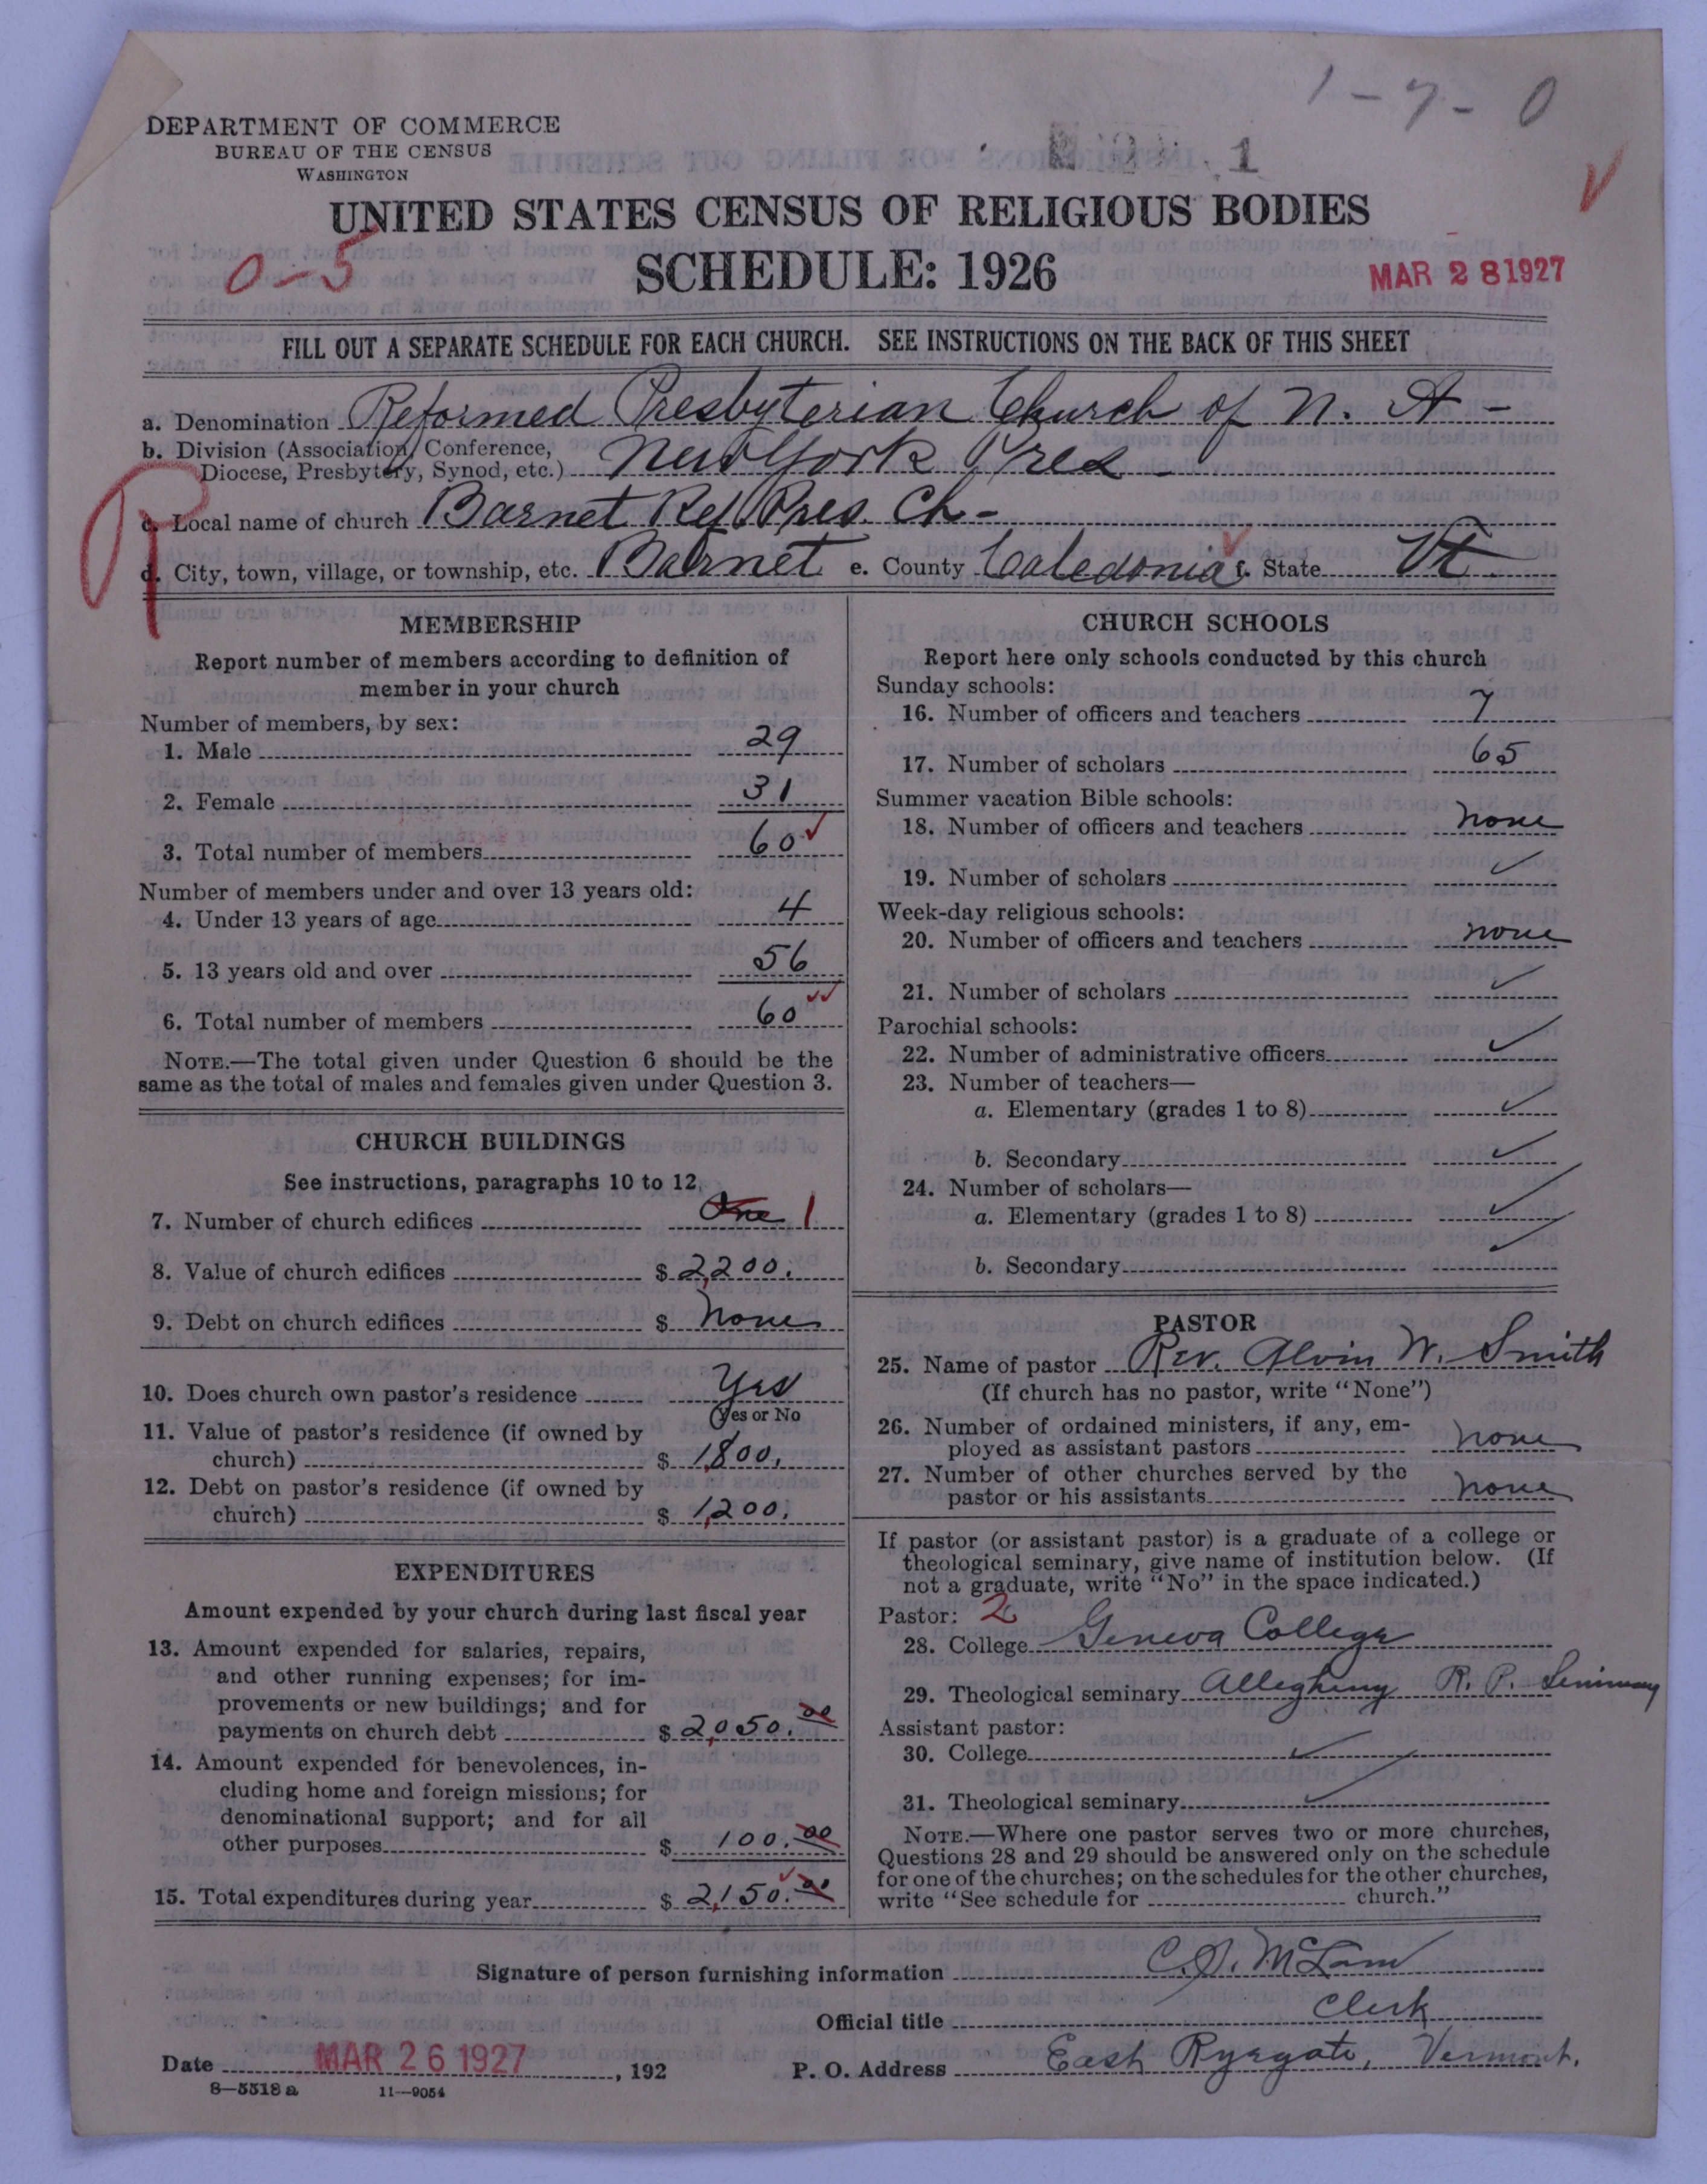 1-7-0
DEPARTMENT OF COMMERCE
BUREAU OF THE CENSUS
WASHINGTON
1
UNITED STATES CENSUS OF RELIGIOUS BODIES
0-5
SCHEDULE: 1926
MAR 28 1927
FILL OUT A SEPARATE SCHEDULE FOR EACH CHURCH. SEE INSTRUCTIONS ON THE BACK OF THIS SHEET
a. Denomination Reformed Presbyterian Church of N. A-
b. Division (Association, Conference,
Diocese, Presbytery, Synod, etc.) New York Pres-
c. Local name of church Barnet Ref. Pres. Ch-
d. City, town, village, or township, etc. Barnet e. County Caledonia f. State Vt.
R
MEMBERSHIP
Report number of members according to definition of
member in your church
Number of members, by sex:
1. Male 29
2. Female 31
3. Total number of members 60
Number of members under and over 13 years old:
4. Under 13 years of age 4
5. 13 years old and over 56
6. Total number of members 60
NOTE.—The total given under Question 6 should be the
same as the total of males and females given under Question 3.
CHURCH BUILDINGS
See instructions, paragraphs 10 to 12
7. Number of church edifices One 1
8. Value of church edifices $ 2,200.
9. Debt on church edifices $ None
10. Does church own pastor's residence Yes
(Yes or No
11. Value of pastor's residence (if owned by
church) $ 1,800.
12. Debt on pastor's residence (if owned by
church) $ 1,200.
EXPENDITURES
Amount expended by your church during last fiscal year
13. Amount expended for salaries, repairs,
and other running expenses; for im-
provements or new buildings; and for
payments on church debt $ 2,050.00
14. Amount expended for benevolences, in-
cluding home and foreign missions; for
denominational support; and for all
other purposes $ 100.00
15. Total expenditures during year $ 2,150.00
CHURCH SCHOOLS
Report here only schools conducted by this church
Sunday schools:
16. Number of officers and teachers 7
17. Number of scholars 65
Summer vacation Bible schools:
18. Number of officers and teachers none
19. Number of scholars
Week-day religious schools:
20. Number of officers and teachers none
21. Number of scholars
Parochial schools:
22. Number of administrative officers
23. Number of teachers—
a. Elementary (grades 1 to 8)
b. Secondary
24. Number of scholars—
a. Elementary (grades 1 to 8)
b. Secondary
PASTOR
25. Name of pastor Rev. Alvin W. Smith
(If church has no pastor, write "None")
26. Number of ordained ministers, if any, em-
ployed as assistant pastors none
27. Number of other churches served by the
pastor or his assistants none
If pastor (or assistant pastor) is a graduate of a college or
theological seminary, give name of institution below. (If
not a graduate, write "No" in the space indicated.)
Pastor: 2
28. College Geneva College
29. Theological seminary Allegheny R. P. Seminary
Assistant pastor:
30. College
31. Theological seminary
NOTE.—Where one pastor serves two or more churches,
Questions 28 and 29 should be answered only on the schedule
for one of the churches; on the schedules for the other churches,
write "See schedule for church."
Signature of person furnishing information
Official title Clerk
Date MAR 26 1927, 192 P. O. Address East Ryegate, Vermont.
8—5518 a 11—9054